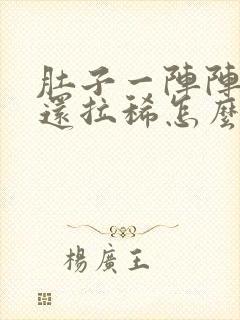 肚子一陣陣
還拉稀怎麼
楊廣王